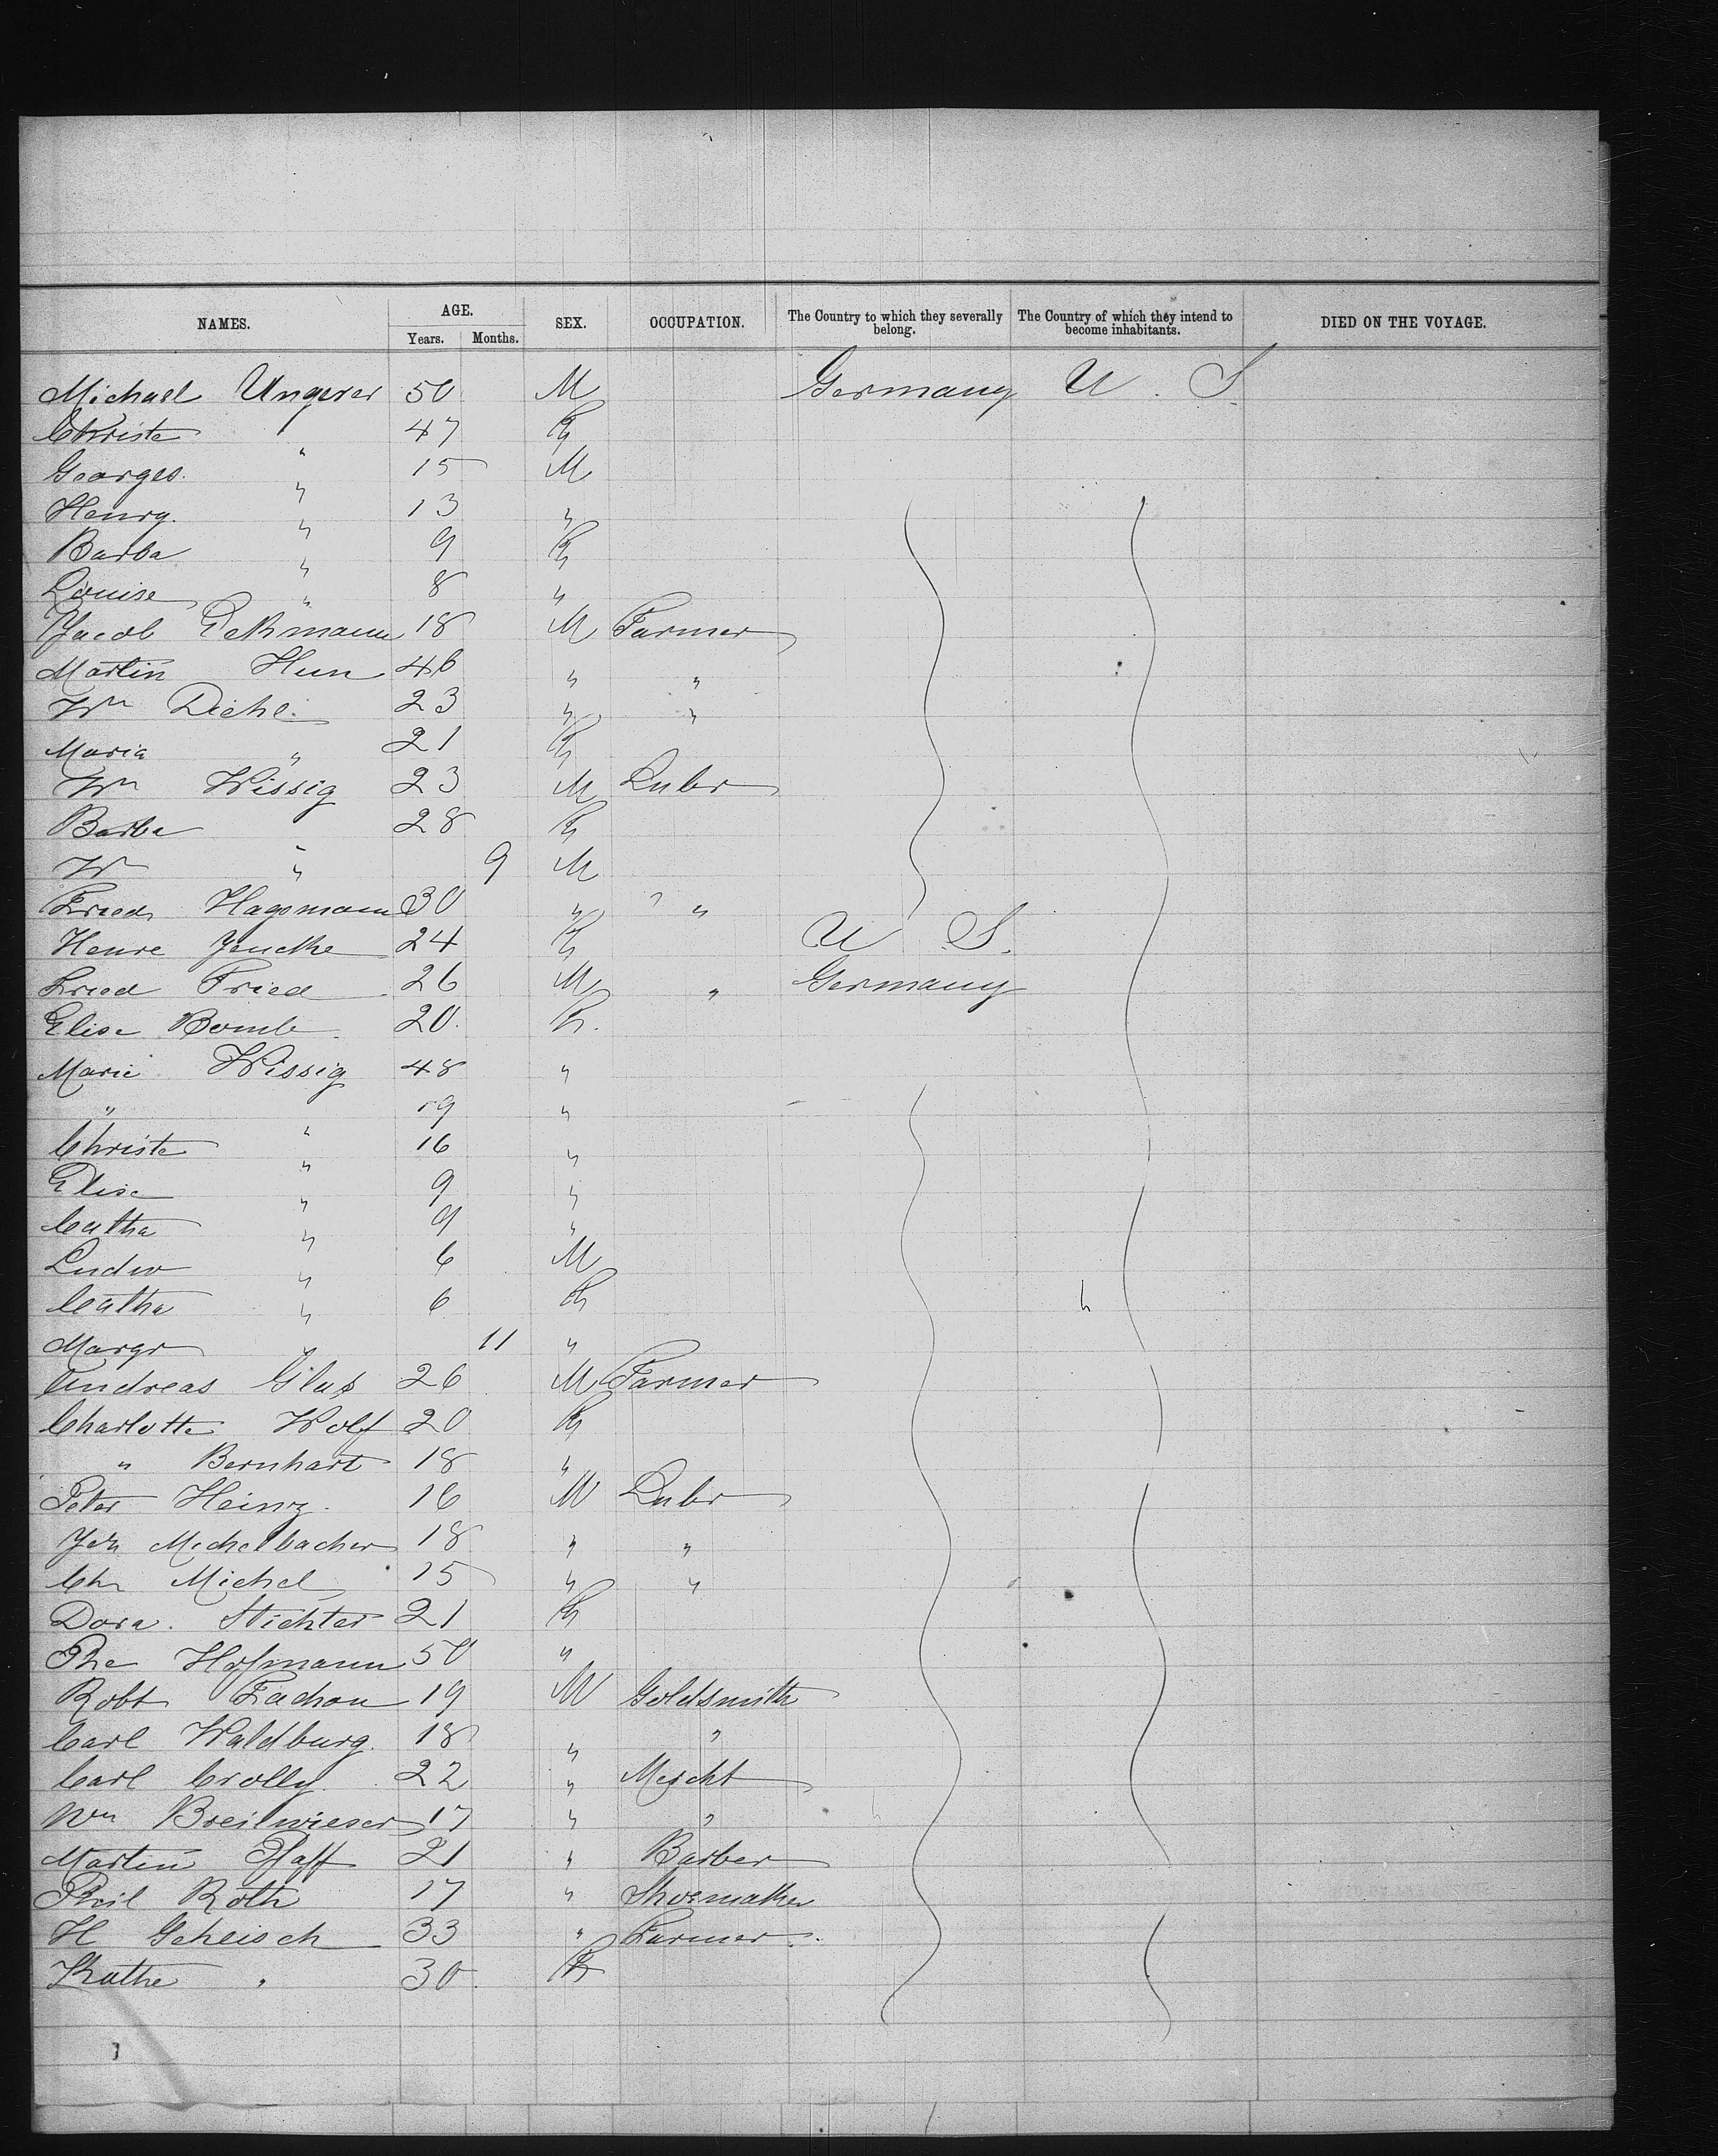 NAMES. AGE. SEX. OCCUPATION. The Country to which they severally belong. The Country of which they intend to become inhabitants. DIED ON THE VOYAGE.
Years. Months.
Michael Ungerer 50 M Germany U. S.
Christe " 47 F
Georges " 15 M
Henry " 13 "
Barba " 9 F
Louise " 8 "
Jacob Dekmann 18 M Farmer
Martin Hun 46 " "
Wm Diehl 23 " "
Maria " 21 F
Wm Wissig 23 M Labr
Barba " 28 F
Wm " 9 M
Fried Hagemann 30 " "
Henre Jencke 24 F U S.
Fried Fried 26 M " Germany
Elise Bomb 20 F
Marie Wissig 48 "
" " 19 "
Christe " 16 "
Elise " 9 "
Catha " 9 "
Ludw " 6 M
Catha " 6 F
Margr " 11 "
Andreas Glas 26 M Farmer
Charlotte Wolf 20 F
" Bernhart 18 "
Peter Heinz 16 M Labr
Joh Mechelbacher 18 " "
Chr Michel 15 " "
Dora Stichter 21 F
Phe Hofmann 50 "
Robt Zachow 19 M Goldsmith
Carl Waldburg 18 " "
Carl Crolly 22 " Mercht
Wm Breitwieser 17 " "
Martin Pfaff 21 " Barber
Phil Roth 17 " Shoemaker
H Geheisch 33 " Farmer
Kathe " 30 F